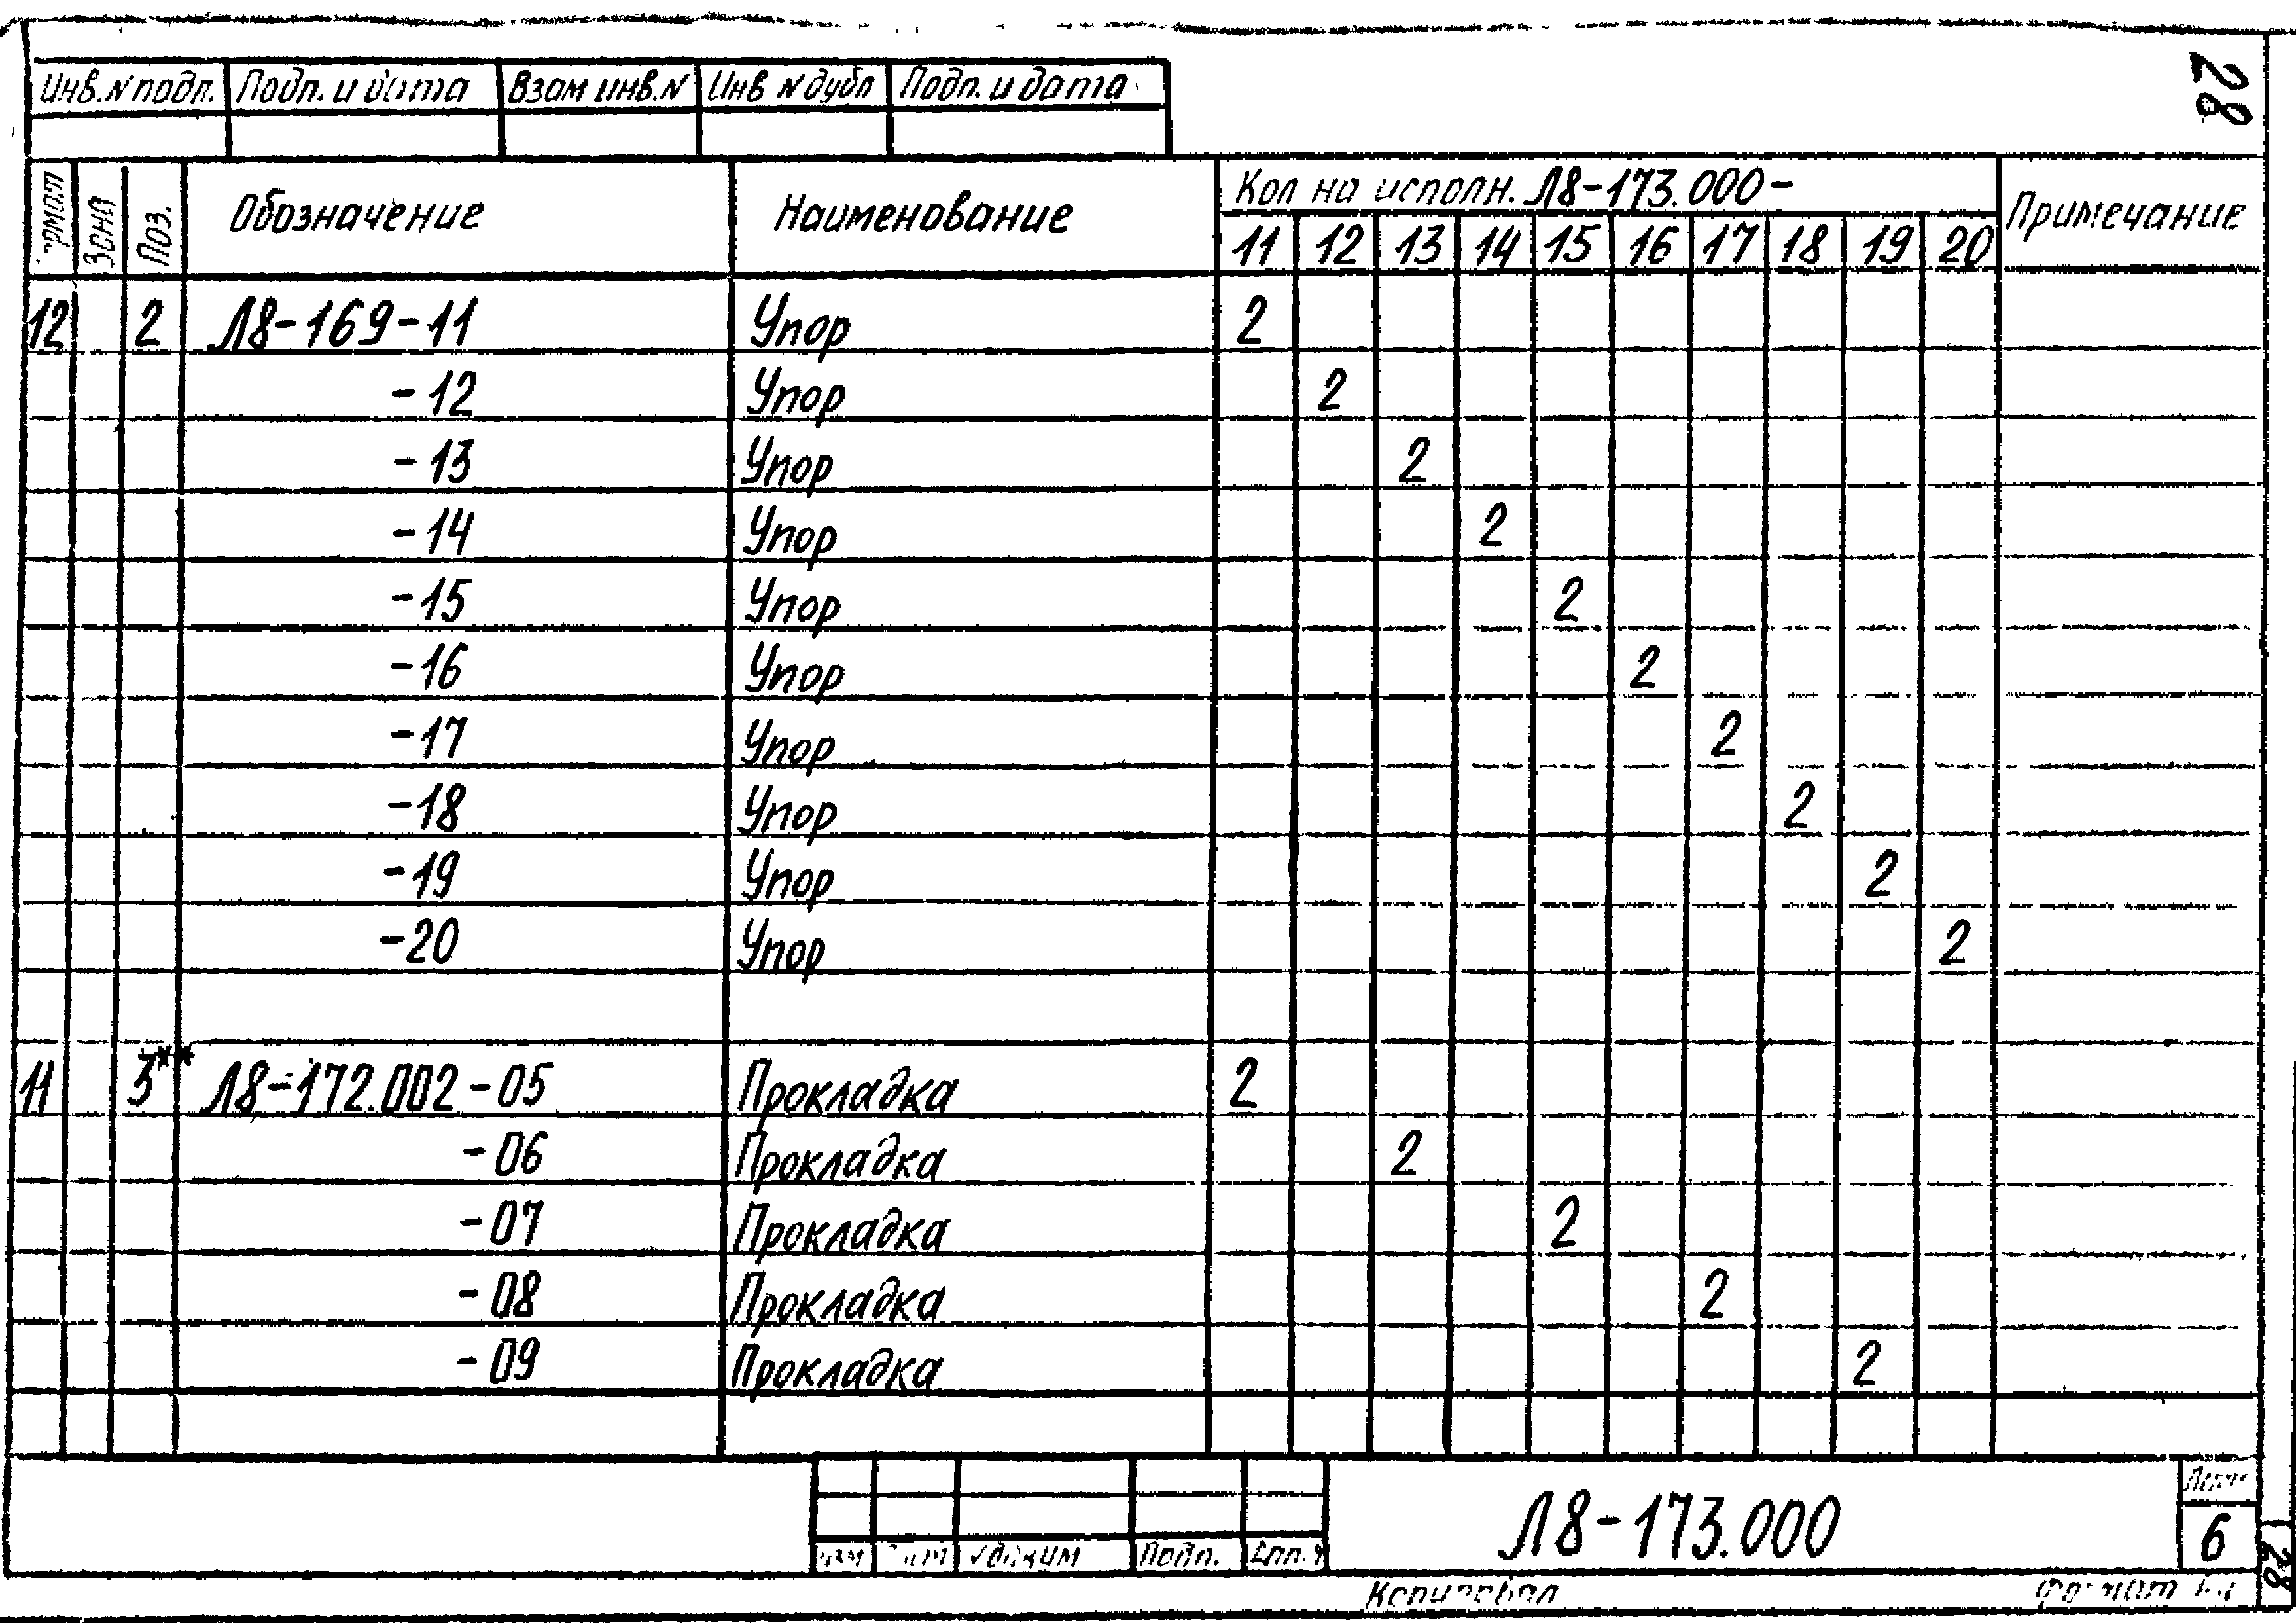 28
Инв.N подп. Подп. и дата Взам инв.N Инв N дубл Подп. и дата
Зона Поз. Обозначение Наименование Кол на исполн. Л8-173.000- Примечание
11 12 13 14 15 16 17 18 19 20
12 2 Л8-169-11 Упор 2
-12 Упор 2
-13 Упор 2
-14 Упор 2
-15 Упор 2
-16 Упор 2
-17 Упор 2
-18 Упор 2
-19 Упор 2
-20 Упор 2
11 3** Л8-172.002-05 Прокладка 2
-06 Прокладка 2
-07 Прокладка 2
-08 Прокладка 2
-09 Прокладка 2
Подп.
Л8-173.000
Лист
6
Копировал Формат
28